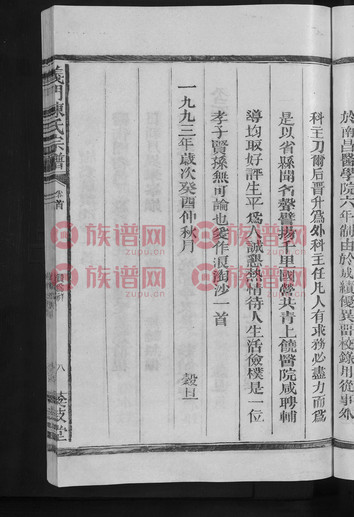 於南昌醫學院六年制由於成績優異留校錄用從事外
科主刀爾后晋升爲外科主任凡人有求務必盡力而爲
是以省縣聞名聲譽揚千里國營共青上饒醫院咸聘輔
導均取好評生平爲人誠懇熱情待人生活儉樸是一位
孝子賢孫無可論也爰作浪淘沙一首
一九九三年歲次癸酉仲秋月
穀旦
義門陳氏宗譜
卷首
八
族谱网
族谱网
族谱网
族谱网